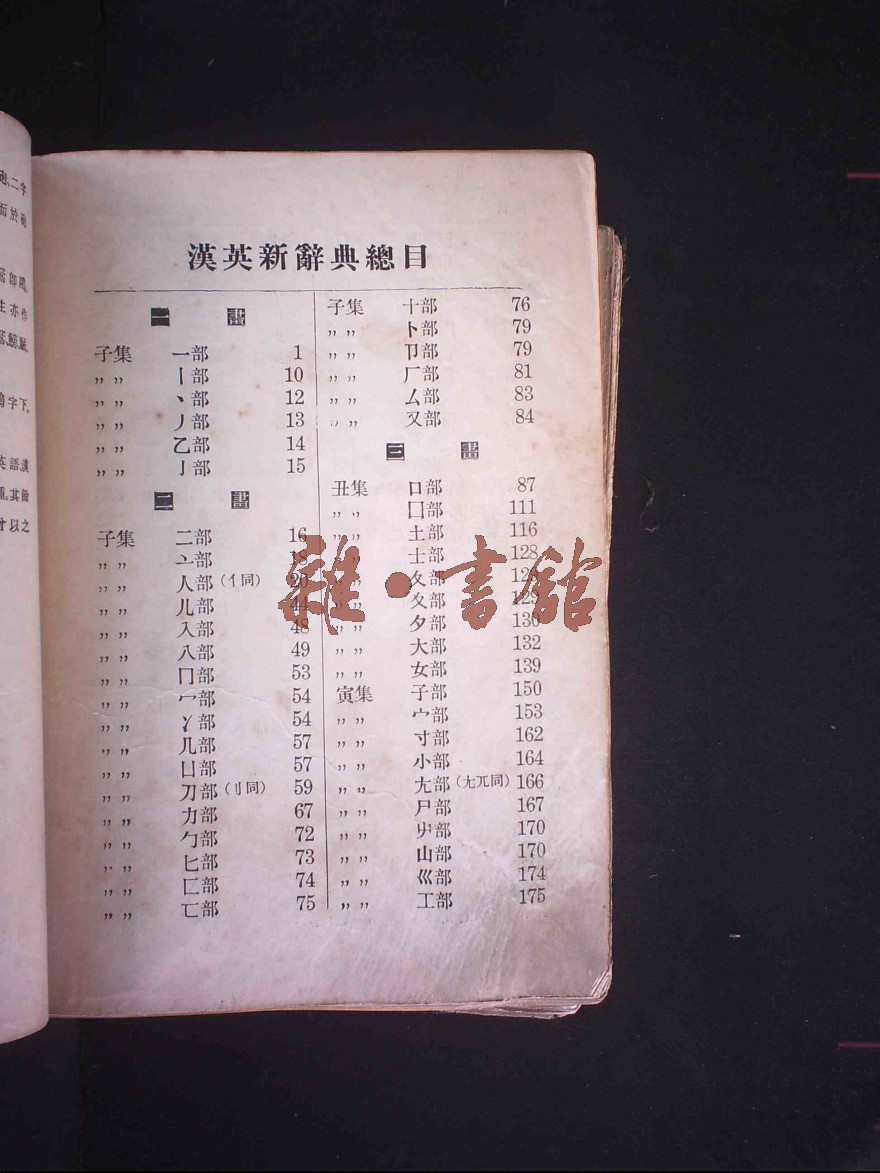 漢英新辭典總目
一 畫
子集 一部 1
〃 〃 丨部 10
〃 〃 丶部 12
〃 〃 丿部 13
〃 〃 乙部 14
〃 〃 亅部 15
二 畫
子集 二部 16
〃 〃 亠部 18
〃 〃 人部(亻同) 20
〃 〃 儿部 44
〃 〃 入部 48
〃 〃 八部 49
〃 〃 冂部 53
〃 〃 冖部 54
〃 〃 冫部 54
〃 〃 几部 57
〃 〃 凵部 57
〃 〃 刀部(刂同) 59
〃 〃 力部 67
〃 〃 勹部 72
〃 〃 匕部 73
〃 〃 匚部 74
〃 〃 匸部 75
子集 十部 76
〃 〃 卜部 79
〃 〃 卩部 79
〃 〃 厂部 81
〃 〃 厶部 83
〃 〃 又部 84
三 畫
丑集 口部 87
〃 〃 囗部 111
〃 〃 土部 116
〃 〃 士部 128
〃 〃 夂部
〃 〃 夊部 129
〃 〃 夕部 130
〃 〃 大部 132
〃 〃 女部 139
寅集 子部 150
〃 〃 宀部 153
〃 〃 寸部 162
〃 〃 小部 164
〃 〃 尢部(尣兀同) 166
〃 〃 尸部 167
〃 〃 屮部 170
〃 〃 山部 170
〃 〃 巛部 174
〃 〃 工部 175
雜·書館